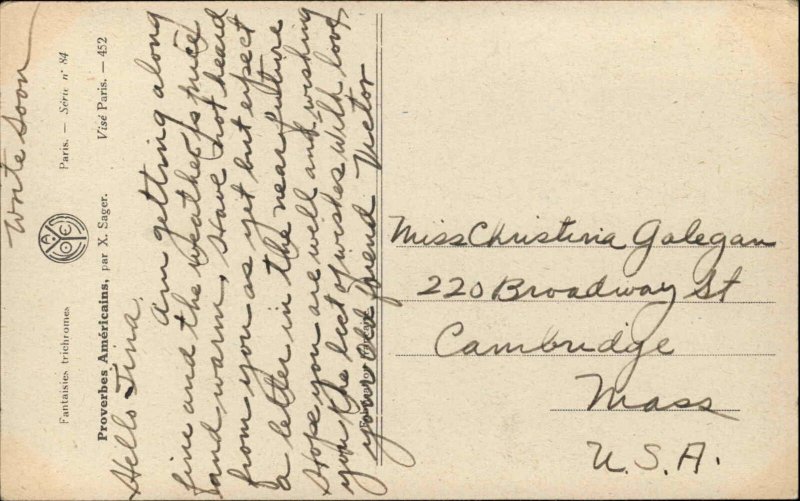 Write soon
Fantaisies trichromes
Paris. — Série n° 84
Proverbes Américains, par X. Sager.
Visé Paris. — 452
Hello Tina
Am getting along
fine and the weather is nice
and warm, Have not heard
from you as yet but expect
a letter in the near future
Hope you are well and wishing
you the best of wishes With love,
your old friend Victor
Miss Christina Galegan
220 Broadway St
Cambridge
Mass
U.S.A.